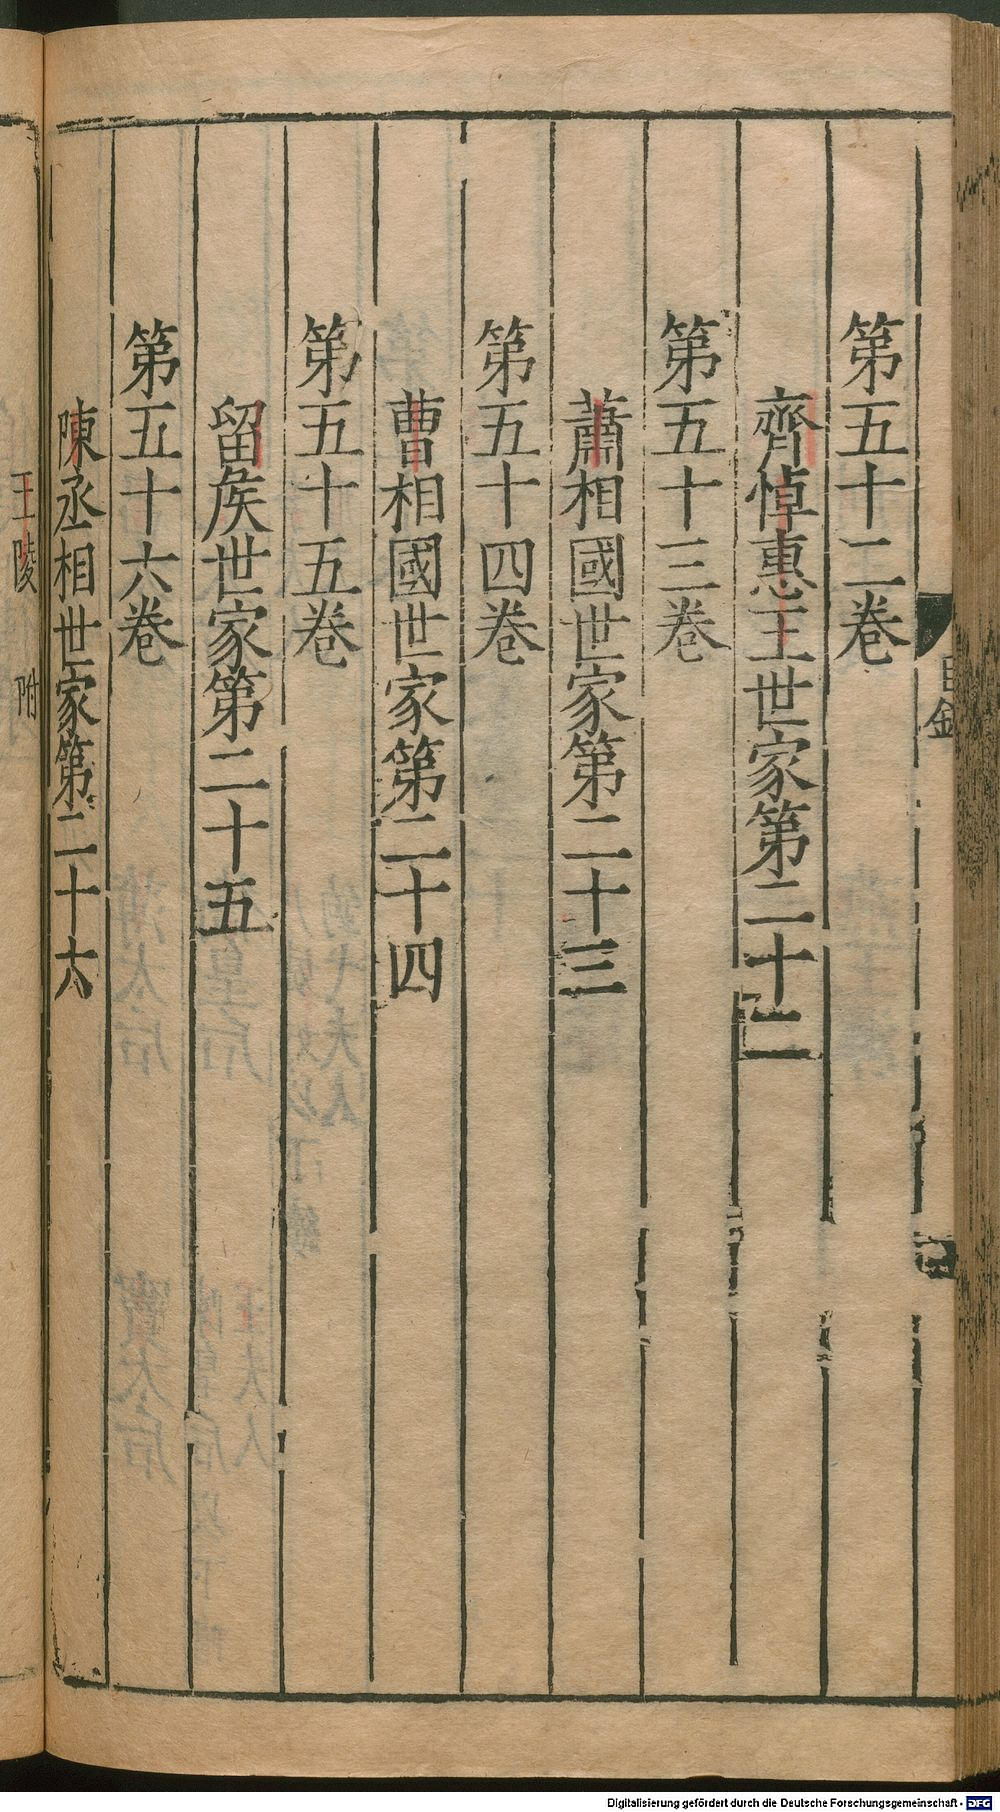 第五十二卷
齊悼惠王世家第二十二
第五十三卷
蕭相國世家第二十三
第五十四卷
曹相國世家第二十四
第五十五卷
留矦世家第二十五
第五十六卷
陳丞相世家第二十六
王陵 附
目錄
Digitalisierung gefördert durch die Deutsche Forschungsgemeinschaft - DFG